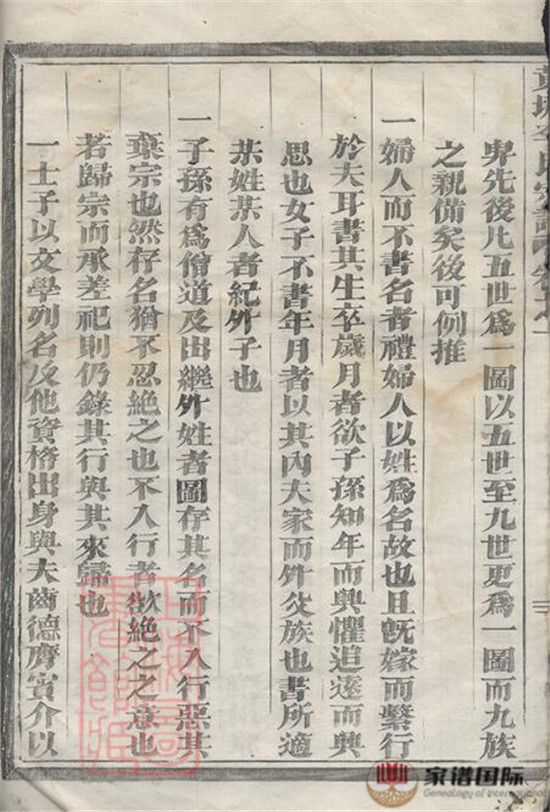 卑先後凡五世爲一圖以五世至九世更爲一圖而九族
之親備矣後可例推
一婦人而不書名者禮婦人以姓爲名故也且旣嫁而繫行
於夫耳書其生卒歲月者欲子孫知年而興懼追遠而興
思也女子不書年月者以其內夫家而外父族也書所適
某姓某人者紀外子也
一子孫有爲僧道及出繼外姓者圖存其名而不入行惡其
棄宗也然存名猶不忍絶之也不入行者欲絶之之意也
若歸宗而承差祀則仍錄其行與其來歸也
一士子以文學列名及他資格出身與夫齒德膺賓介以
家谱国际
Genealogy of International